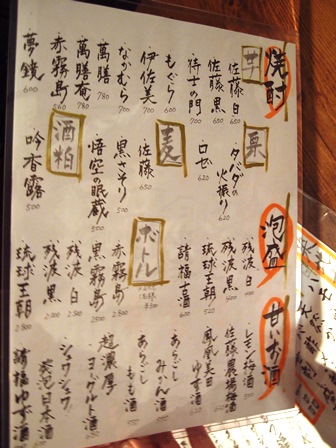 焼酎
芋
佐藤 白 650
佐藤 黒 650
侍士の門 700
もぐら 600
伊佐美 700
なかむら 780
萬膳 780
萬膳庵 780
赤霧島 560
夢鏡 600
栗
ダバダの火振り
ロゼ 620
麦
佐藤 650
黒さそり 500
悟空の眠蔵 500
酒粕
吟香露 500
泡盛
残波 白
残波 黒
琉球王朝 520
請福古酒 600
ボトル
赤霧島 2800
黒霧島 2500
残波 白
残波 黒 2800
琉球王朝 2800
甘いお酒
レモン梅酒
佐藤農場梅酒
鳳凰美田ゆず酒
あらごしみかん酒
あらごしもも酒
超濃厚ヨーグルト酒
シュワシュワ
発泡日本酒
請福ゆず酒